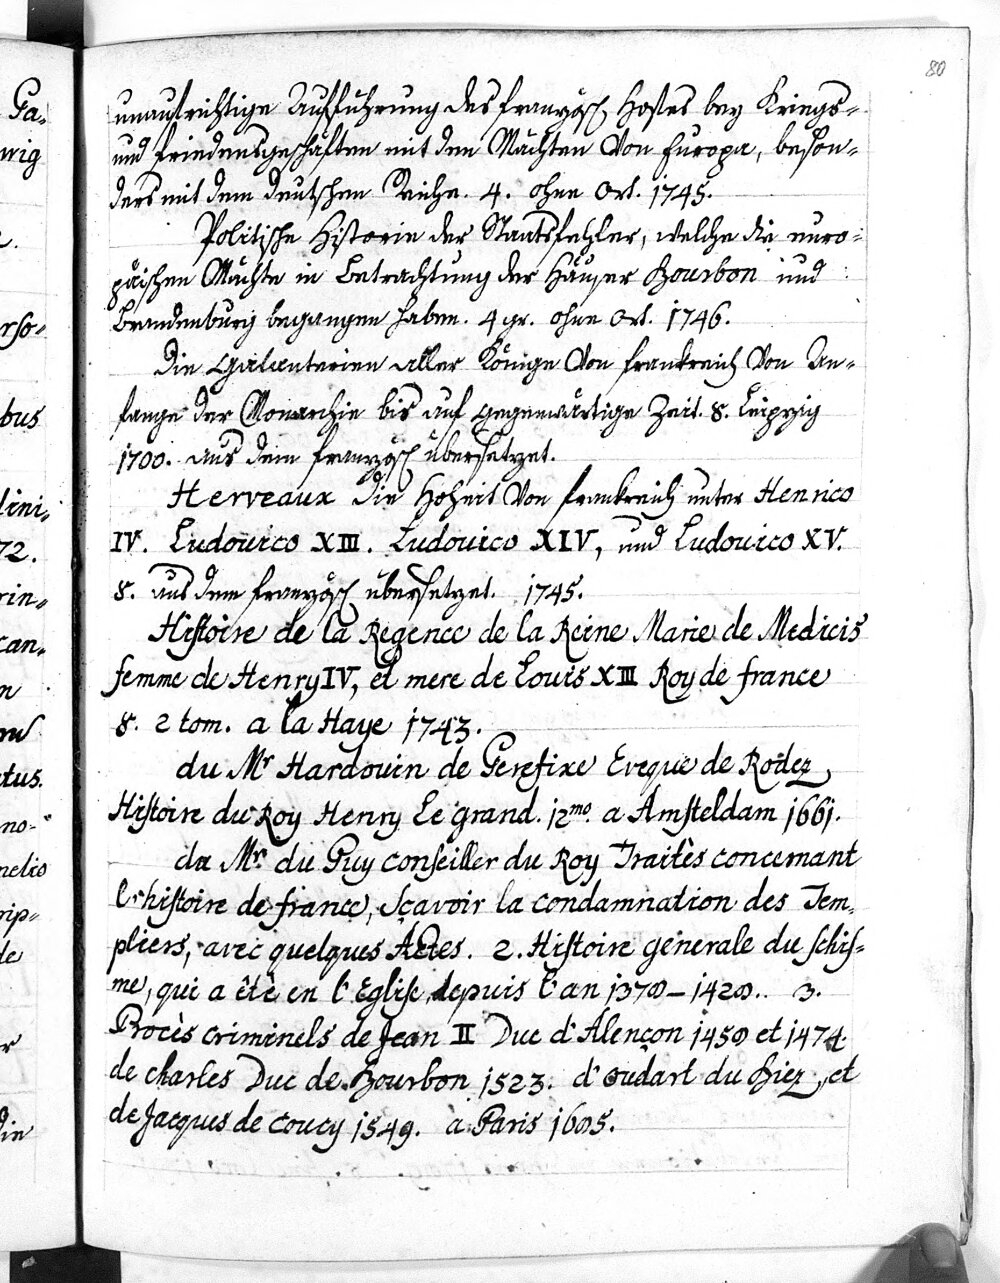 80
unaufrichtige Aufführung des französ. Hofes bey Kriegs-
und Friedensgeschäften mit den Mächten von Europa, beson-
ders mit dem deutschen Reiche. 4. ohne Ort. 1745.
Politische Historie der Staatsfehler, welche die euro-
päischen Mächte in Betrachtung der Häuser Bourbon und
Brandenburg begangen haben. 4 gr. ohne Ort. 1746.
Die Galanterien aller Könige von Frankreich von An-
fange der Monarchie bis auf gegenwärtige Zeit. 8. Leipzig
1700. aus dem französ. übersetzet.
Herveaux die Hoheit von Frankreich unter Henrico
IV. Ludovico XIII. Ludovico XIV, und Ludovico XV.
8. aus dem französ. übersetzet. 1745.
Histoire de la Regence de la Reine Marie de Medicis
femme de Henry IV, et mere de Louis XIII Roy de france
8. 2 tom. a la Haye 1743.
du Mr Hardouin de Perefixe Eveque de Rodez,
Histoire du Roy Henry le grand. 12mo. a Amsteldam 1661.
du Mr. du Puy conseiller du Roy Traitès concernant
l'histoire de france, sçavoir la condamnation des Tem-
pliers, avec quelques Actes. 2. Histoire generale du schis-
me, qui a êtè en l'Eglise depuis l'an 1378-1428.. 3.
Procès criminels de Jean II Duc d'Alençon 1458 et 1474.
de charles Duc de Bourbon 1523. d'oudart du Biez, et
de Jacques de Coucy 1549. a Paris 1685.
Ga-
wig
rso-
bus
lini-
72.
rin-
can-
tus.
no-
nelio
rip-
de
die